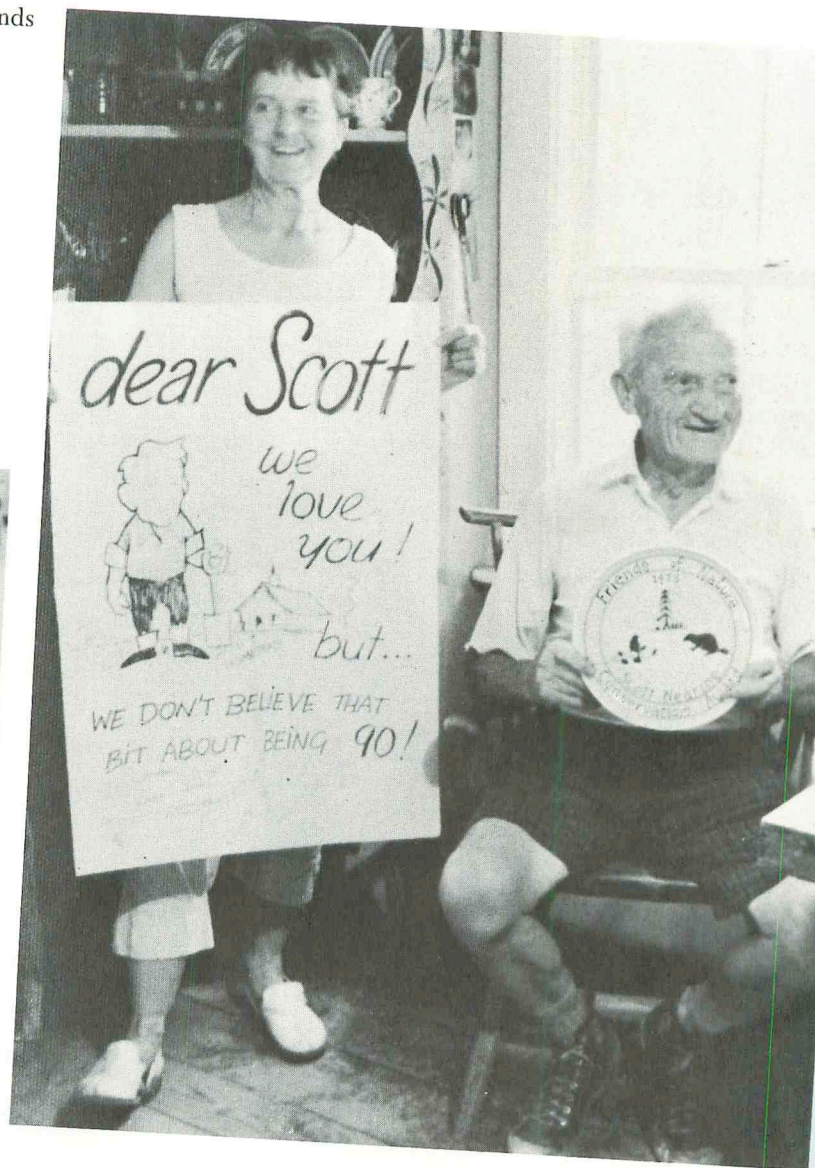 nds
dear Scott
we
love
you!
but...
WE DON'T BELIEVE THAT
BIT ABOUT BEING 90!
Friends of Nature
Scott Nearing
Conservation Award